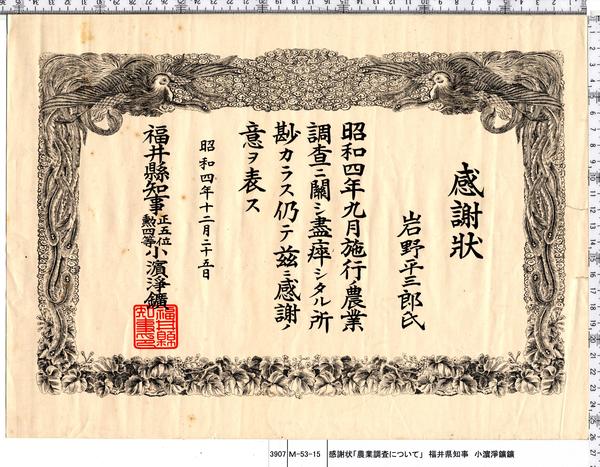 感謝狀
岩野平三郎氏
昭和四年九月施行ノ農業
調查ニ關シ盡瘁シタル所
尠カラス仍テ茲ニ感謝ノ
意ヲ表ス
昭和四年十二月二十五日
福井縣知事正五位勲四等小濱淨鑛
福井縣知事之印
3907 M-53-15 感謝状「農業調査について」 福井県知事 小濵淨鑛